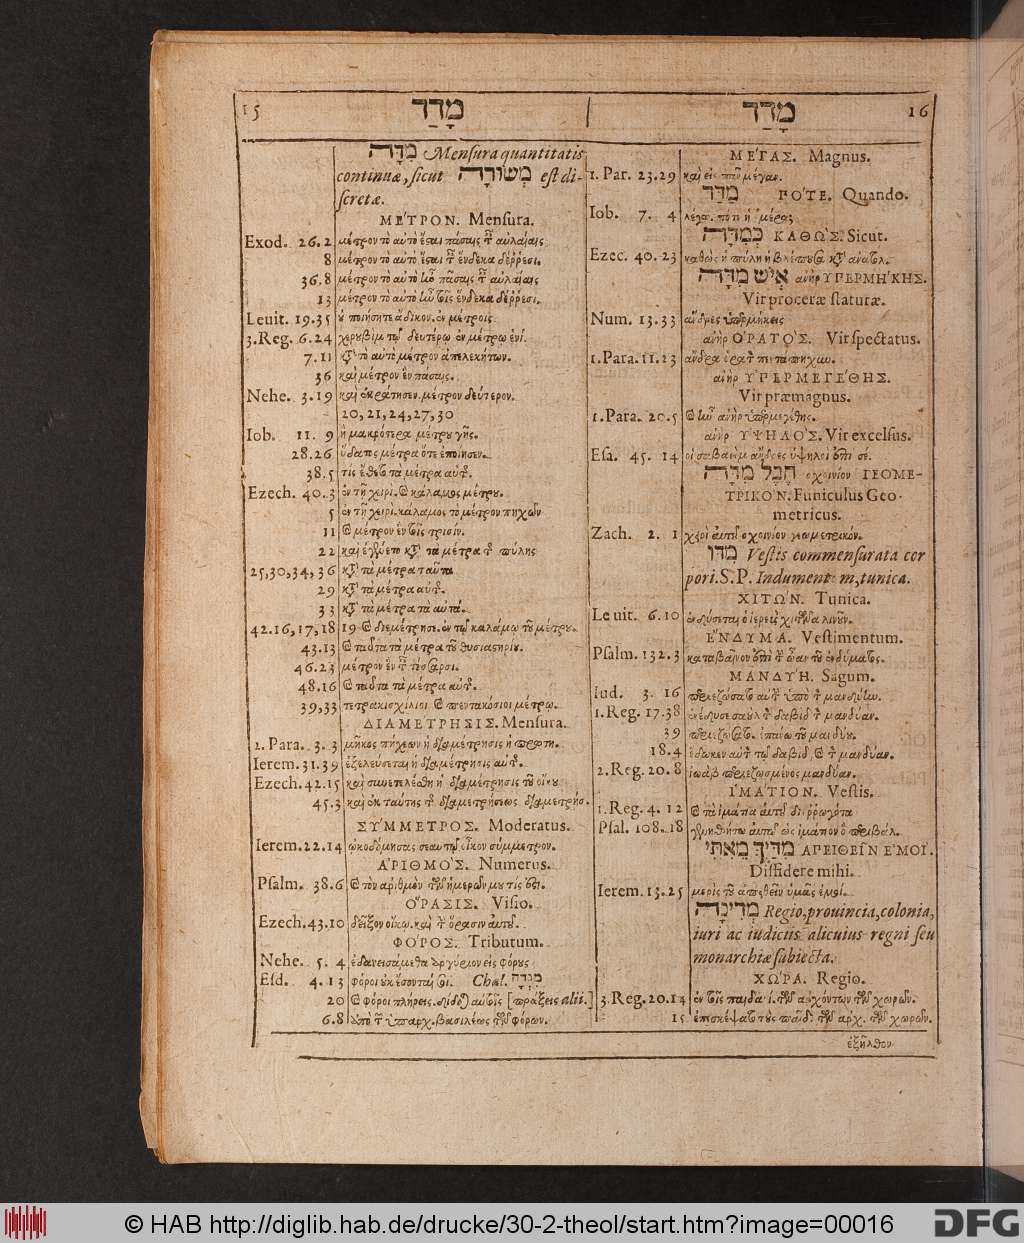 15 מָדַד
מִדָּה Mensura quantitatis
continuæ, sicut מְשׂוּרָה est di-
scretæ.
ΜΕ´ΤΡΟΝ. Mensura.
Exod. 26.2 μέτρον τὸ αὐτὸ ἔσται πάσαις τ αὐλαίαις
8 μέτρον τὸ αὐτὸ ἔσται τ ἕνδεκα δέρρεσι.
36.8 μέτρον τὸ αὐτὸ ἦν πάσαις τ αὐλαίαις
13 μέτρον τὸ αὐτὸ ἦν τοῖς ἕνδεκα δέρρεσι.
Leuit. 19.35 οὐ ποιήσητε ἄδικον. ἐν μέτροις
3.Reg. 6.24 χερουβὶμ τῷ δευτέρῳ ἐν μέτρῳ ἑνί.
7.11 κτ τὸ αὐτὸ μέτρον ἀπελεκήτων.
36 καὶ μέτρον ἓν πάσαις.
Nehe. 3.19 καὶ ἐκράτησεν. μέτρον δεύτερον.
20, 21, 24, 27, 30
Iob. 11. 9 ἢ μακρότερα μέτρου γῆς.
28.26 ὕδατος μέτρα ὅτε ἐποίησεν.
38.5 τίς ἔθετο τὰ μέτρα αὐτ.
Ezech. 40.3 ἐν τῇ χειρὶ. καὶ κάλαμος μέτρου.
5 ἐν τῇ χειρὶ. κάλαμος τὸ μέτρον πηχῶν
11 καὶ μέτρον ἓν τοῖς τρισίν.
22 καὶ ἐγένετο κτ τὰ μέτρα τ πύλης
25, 30, 34, 36 κτ τὰ μέτρα ταῦτα
29 κτ τὰ μέτρα αὐτ.
33 κτ τὰ μέτρα τὰ αὐτά.
42.16, 17, 18 19 καὶ διεμέτρησε. ἐν τῷ καλάμῳ τοῦ μέτρου.
43.13 καὶ ταῦτα τὰ μέτρα τοῦ θυσιαστηρίου.
46.23 μέτρον ἓν τ τέσσαρσι.
48.16 καὶ ταῦτα τὰ μέτρα αὐτ.
39, 33 τετρακισχίλιοι καὶ πεντακόσιοι μέτρῳ.
ΔΙΑΜΕΤΡΗΣΙΣ. Mensura.
2. Para. 3. 3 μῆκος πήχεων ἡ διαμέτρησις ἡ πρώτη.
Ierem. 31.39 ἐξελεύσεται ἡ διαμέτρησις αὐτ.
Ezech. 42.15 καὶ συνετελέσθη ἡ διαμέτρησις τοῦ οἴκου
45.3 καὶ ἐκ ταύτης τ διαμετρήσεως διαμετρήσ.
ΣΥ´ΜΜΕΤΡΟΣ. Moderatus.
Ierem. 22.14 ᾠκοδόμησας σεαυτῷ οἶκον σύμμετρον.
ἈΡΙΘΜΟ`Σ. Numerus.
Psalm. 38.6 καὶ τὸν ἀριθμὸν τῶν ἡμερῶν μου τίς ἐστι.
ὍΡΑΣΙΣ. Visio.
Ezech. 43.10 δεῖξον οἴκῳ. καὶ τ ὅρασιν αὐτοῦ.
ΦΟ´ΡΟΣ. Tributum.
Nehe. 5. 4 ἐδανεισάμεθα ἀργύριον εἰς φόρους
Esd. 4. 13 φόροι οὐκ ἔσονταί σοι. Chal. מִנְדָּה
20 καὶ φόροι πλήρεις. δίδοται αὐτοῖς [πράξεις alii.]
6.8 ἀπὸ τ ὑπαρχ. βασιλέως τῶν φόρων.
מָדַד 16
ΜΕ´ΓΑΣ. Magnus.
1. Par. 23.29 καὶ εἰς πᾶν μέγαν.
מִדַּד ΠΟΤΕ. Quando.
Iob. 7. 4 λέγω. πότε ἡ ἡμέρα
כְּמִדָּה ΚΑΘΩ`Σ. Sicut.
Ezec. 40.23 καθὼς ἡ πύλη ἡ βλέπουσα κτ ἀνατολ.
אִישׁ מִדָּה ἀνὴρ ΥΠΕΡΜΗ´ΚΗΣ.
Vir proceræ staturæ.
Num. 13.33 ἄνδρες ὑπερμήκεις
ἀνὴρ ὉΡΑΤΟ`Σ. Vir spectatus.
1. Para. 11.23 ἄνδρα ὁρατ πενταπήχυν.
ἀνὴρ ΥΠΕΡΜΕΓΕ´ΘΗΣ.
Vir præmagnus.
1. Para. 20.5 καὶ ἦν ἀνὴρ ὑπερμεγέθης.
ἀνὴρ ΥΨΗΛΟ`Σ. Vir excelsus.
Esa. 45. 14 οἱ σαβαεὶμ ἄνδρες ὑψηλοὶ ἐπί σε.
חֶבֶל מִדָּה σχοινίον ΓΕΩΜΕ-
ΤΡΙΚΟ`Ν. Funiculus Geo-
metricus.
Zach. 2. 1 χειρὶ αὐτοῦ σχοινίον γεωμετρικόν.
מִדּוֹ Vestis commensurata cor
pori. S.P. Indumentum, tunica.
ΧΙΤΩ`Ν. Tunica.
Leuit. 6.10 ἐνδύσεται ὁ ἱερεὺς χιτῶνα λινοῦν.
ἘΝΔΥΜΑ. Vestimentum.
Psalm. 132.3 καταβαῖνον ἐπὶ τ ὤαν τοῦ ἐνδύματος.
ΜΑΝΔΥΗ. Sagum.
Iud. 3. 16 περιεζώσατο αὐτ ὑπὸ τ μανδύαν.
1. Reg. 17.38 ἐνέδυσε σαοὺλ τ δαβὶδ τ μανδύαν.
39 περιεζώσατο. ἐπάνω τοῦ μανδύου.
18.4 ἔδωκεν αὐτ τῷ δαβὶδ, καὶ τ μανδύαν.
2. Reg. 20.8 ἰωὰβ περιεζωσμένος μανδύαν.
ἹΜΑ´ΤΙΟΝ. Vestis.
1. Reg. 4. 12 καὶ τὰ ἱμάτια αὐτοῦ διερρωγότα
Psal. 108. 18 γενηθήτω αὐτῷ ὡς ἱμάτιον ὃ περιβάλ.
מִדַּיִךְ מֵאִתִּי ΑΠΕΙΘΕΙ͂Ν ΕΜΟΙ`.
Diffidere mihi.
Ierem. 13.25 μερὶς τοῦ ἀπειθεῖν ὑμᾶς ἐμοί.
מְדִינָה Regio, prouincia, colonia,
iuri ac iudiciis alicuius regni seu
monarchiæ subiecta.
ΧΩ´ΡΑ. Regio.
3. Reg. 20.14 ἐν τοῖς παιδα. τῶν ἀρχόντων τῶν χωρῶν.
15 ἐπισκέψατο τοὺς παῖδ. τῶν ἀρχ. τῶν χωρῶν.
ἐξῆλθον
© HAB http://diglib.hab.de/drucke/30-2-theol/start.htm?image=00016
DFG